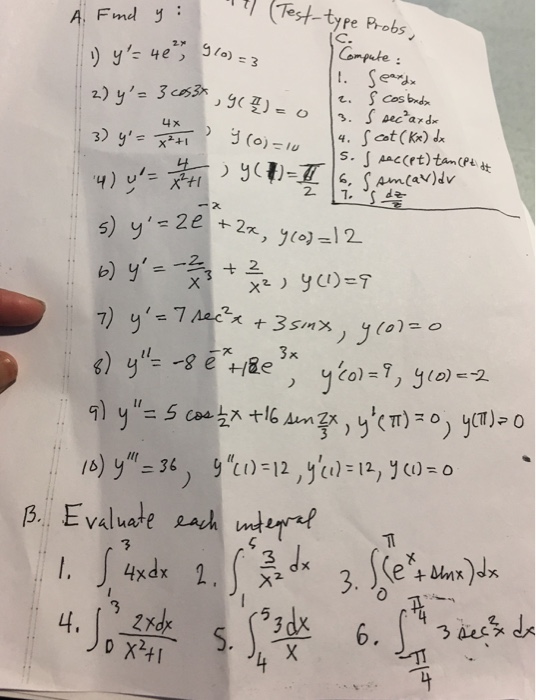 A. Find y :
(Test-type Probs,
1) y' = 4e^{2x}, y(0) = 3
2) y' = 3 cos 3x, y(π/2) = 0
3) y' = 4x/(x²+1), y(0) = 10
4) y' = 4/(x²+1), y(1) = π/2
5) y' = 2e^{-x} + 2x, y(0) = 12
6) y' = -2/x³ + 2/x², y(1) = 9
7) y' = 7 sec²x + 3 sin x, y(0) = 0
8) y'' = -8 e^{-x} + 18e^{3x}, y'(0) = 9, y(0) = -2
9) y'' = 5 cos ½x + 16 sin 2/3 x, y'(π) = 0, y(π) = 0
10) y''' = 36, y''(1) = 12, y'(1) = 12, y(1) = 0
C.
Compute :
1. ∫ e^{ax} dx
2. ∫ cos bx dx
3. ∫ sec² ax dx
4. ∫ cot (Kx) dx
5. ∫ sec(pt) tan(pt) dt
6. ∫ sin(av) dv
7. ∫ dz/z
B. Evaluate each integral
1. ∫₁³ 4x dx 2. ∫₁⁵ 3/x² dx 3. ∫₀^π (e^x + sin x) dx
4. ∫₀³ 2x dx/(x²+1) 5. ∫₄⁵ 3 dx/x 6. ∫_{-π/4}^{π/4} 3 sec²x dx